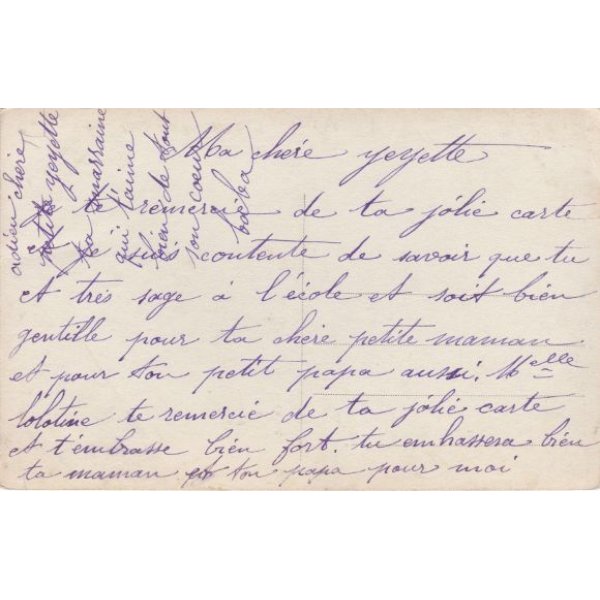 Ma chère yeyette
je te remercie de ta jólie carte
et je suis contente de savoir que tu
et très sage à l'école et soit bien
gentille pour ta chère petite maman
et pour ton petit papa aussi. Melle
lolotine te remercie de ta jólie carte
et t'embrasse bien fort. tu embassera bien
ta maman et ton papa pour moi
adieu chère
petite yeyette
ta marraine
qui t'aime
bien de tout
son coeur
baba